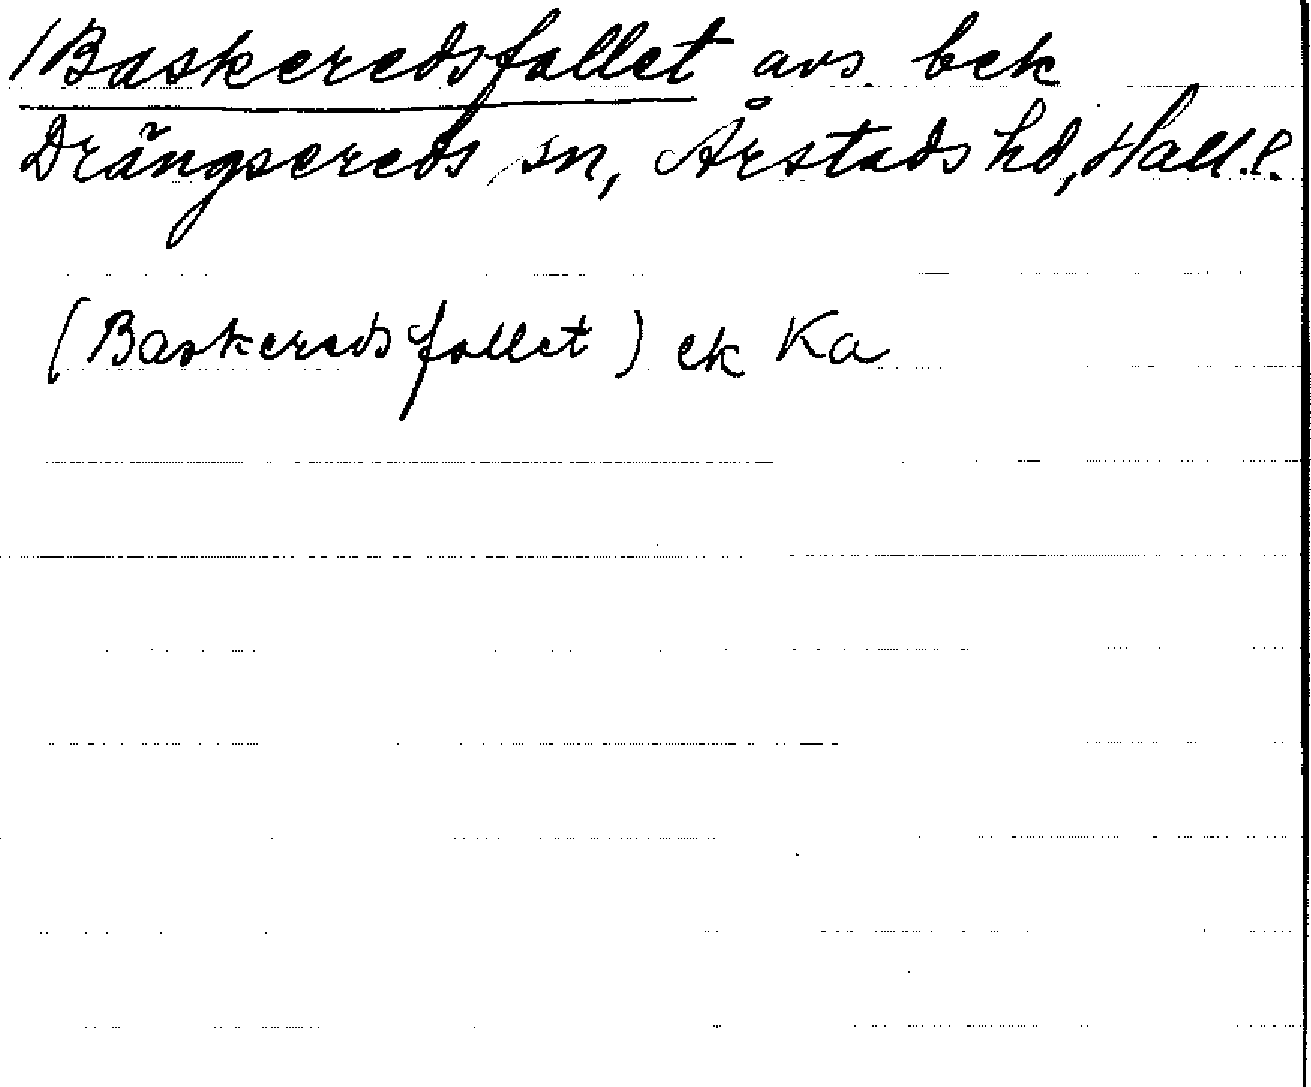 /Baskeredsfallet avs. bek
Drängsereds sn, Årstads hd, Hall.l.
(Baskeredsfallet) ek Ka